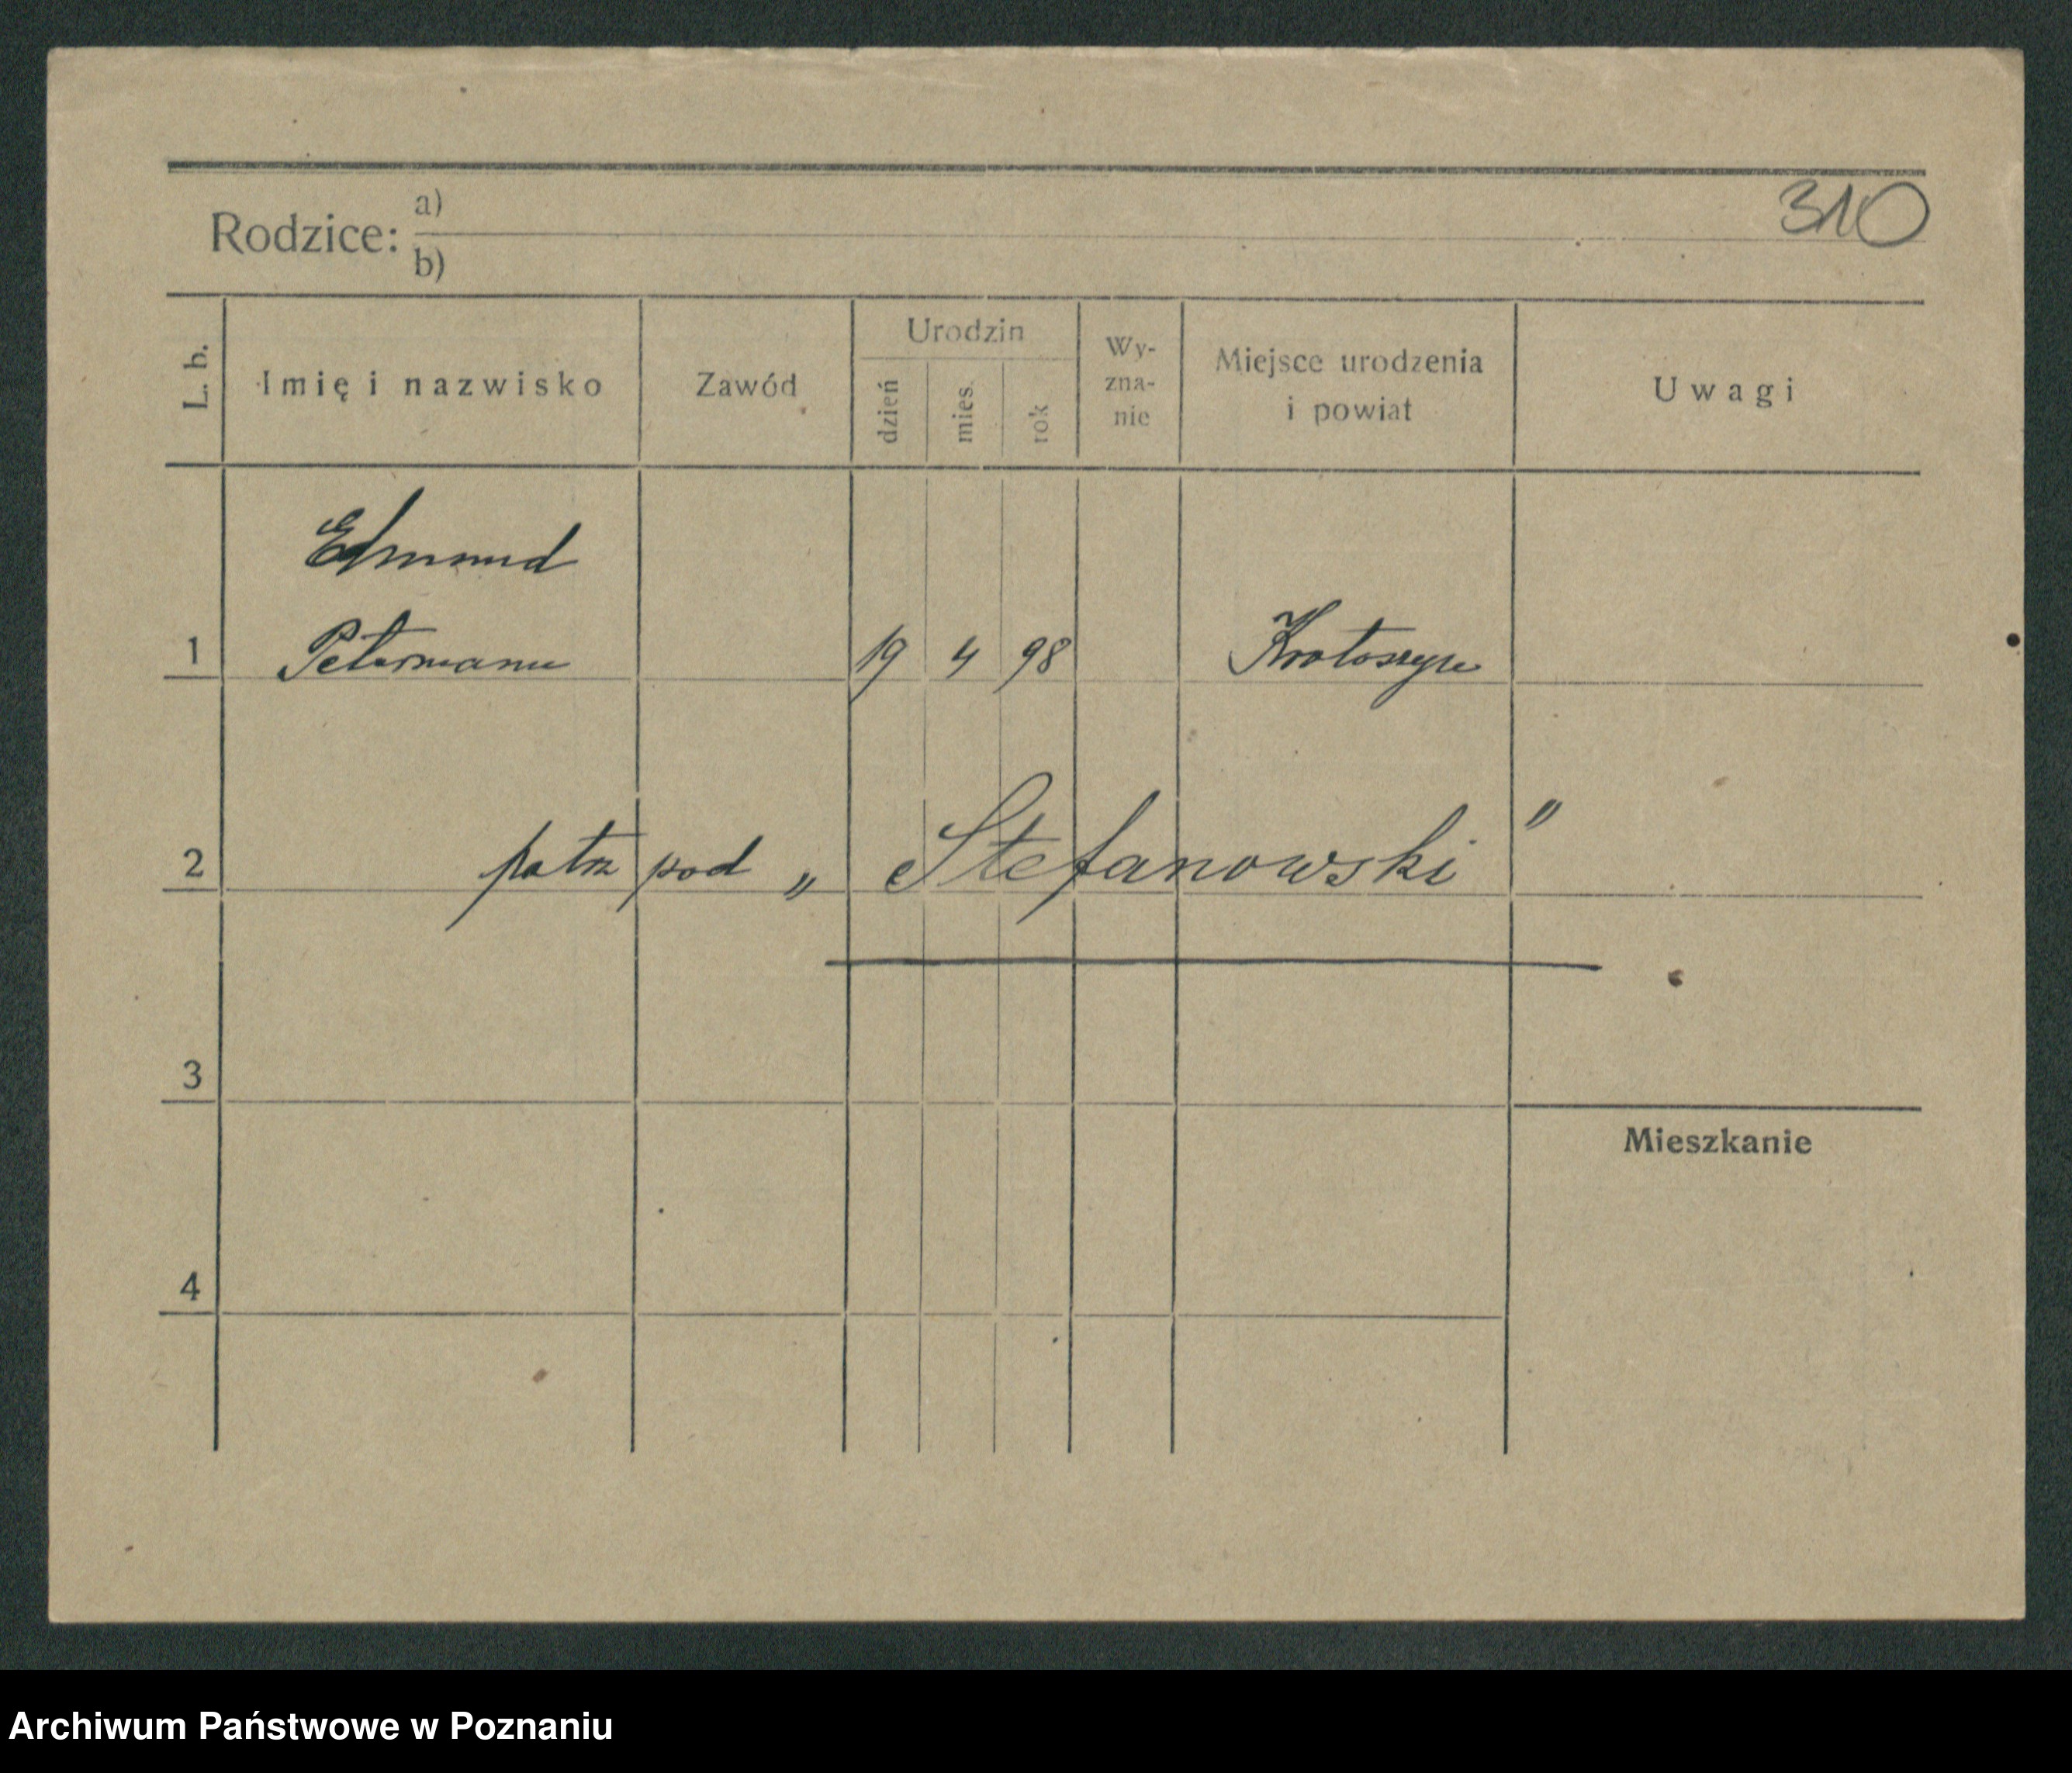 310
Rodzice: a)
b)
L. b. Imię i nazwisko Zawód Urodzin dzień mies. rok Wy-zna-nie Miejsce urodzenia i powiat Uwagi
Edmund
1 Petermann 19 4 98 Krotoszyn
2 patrz pod „Stefanowski"
3
Mieszkanie
4
Archiwum Państwowe w Poznaniu